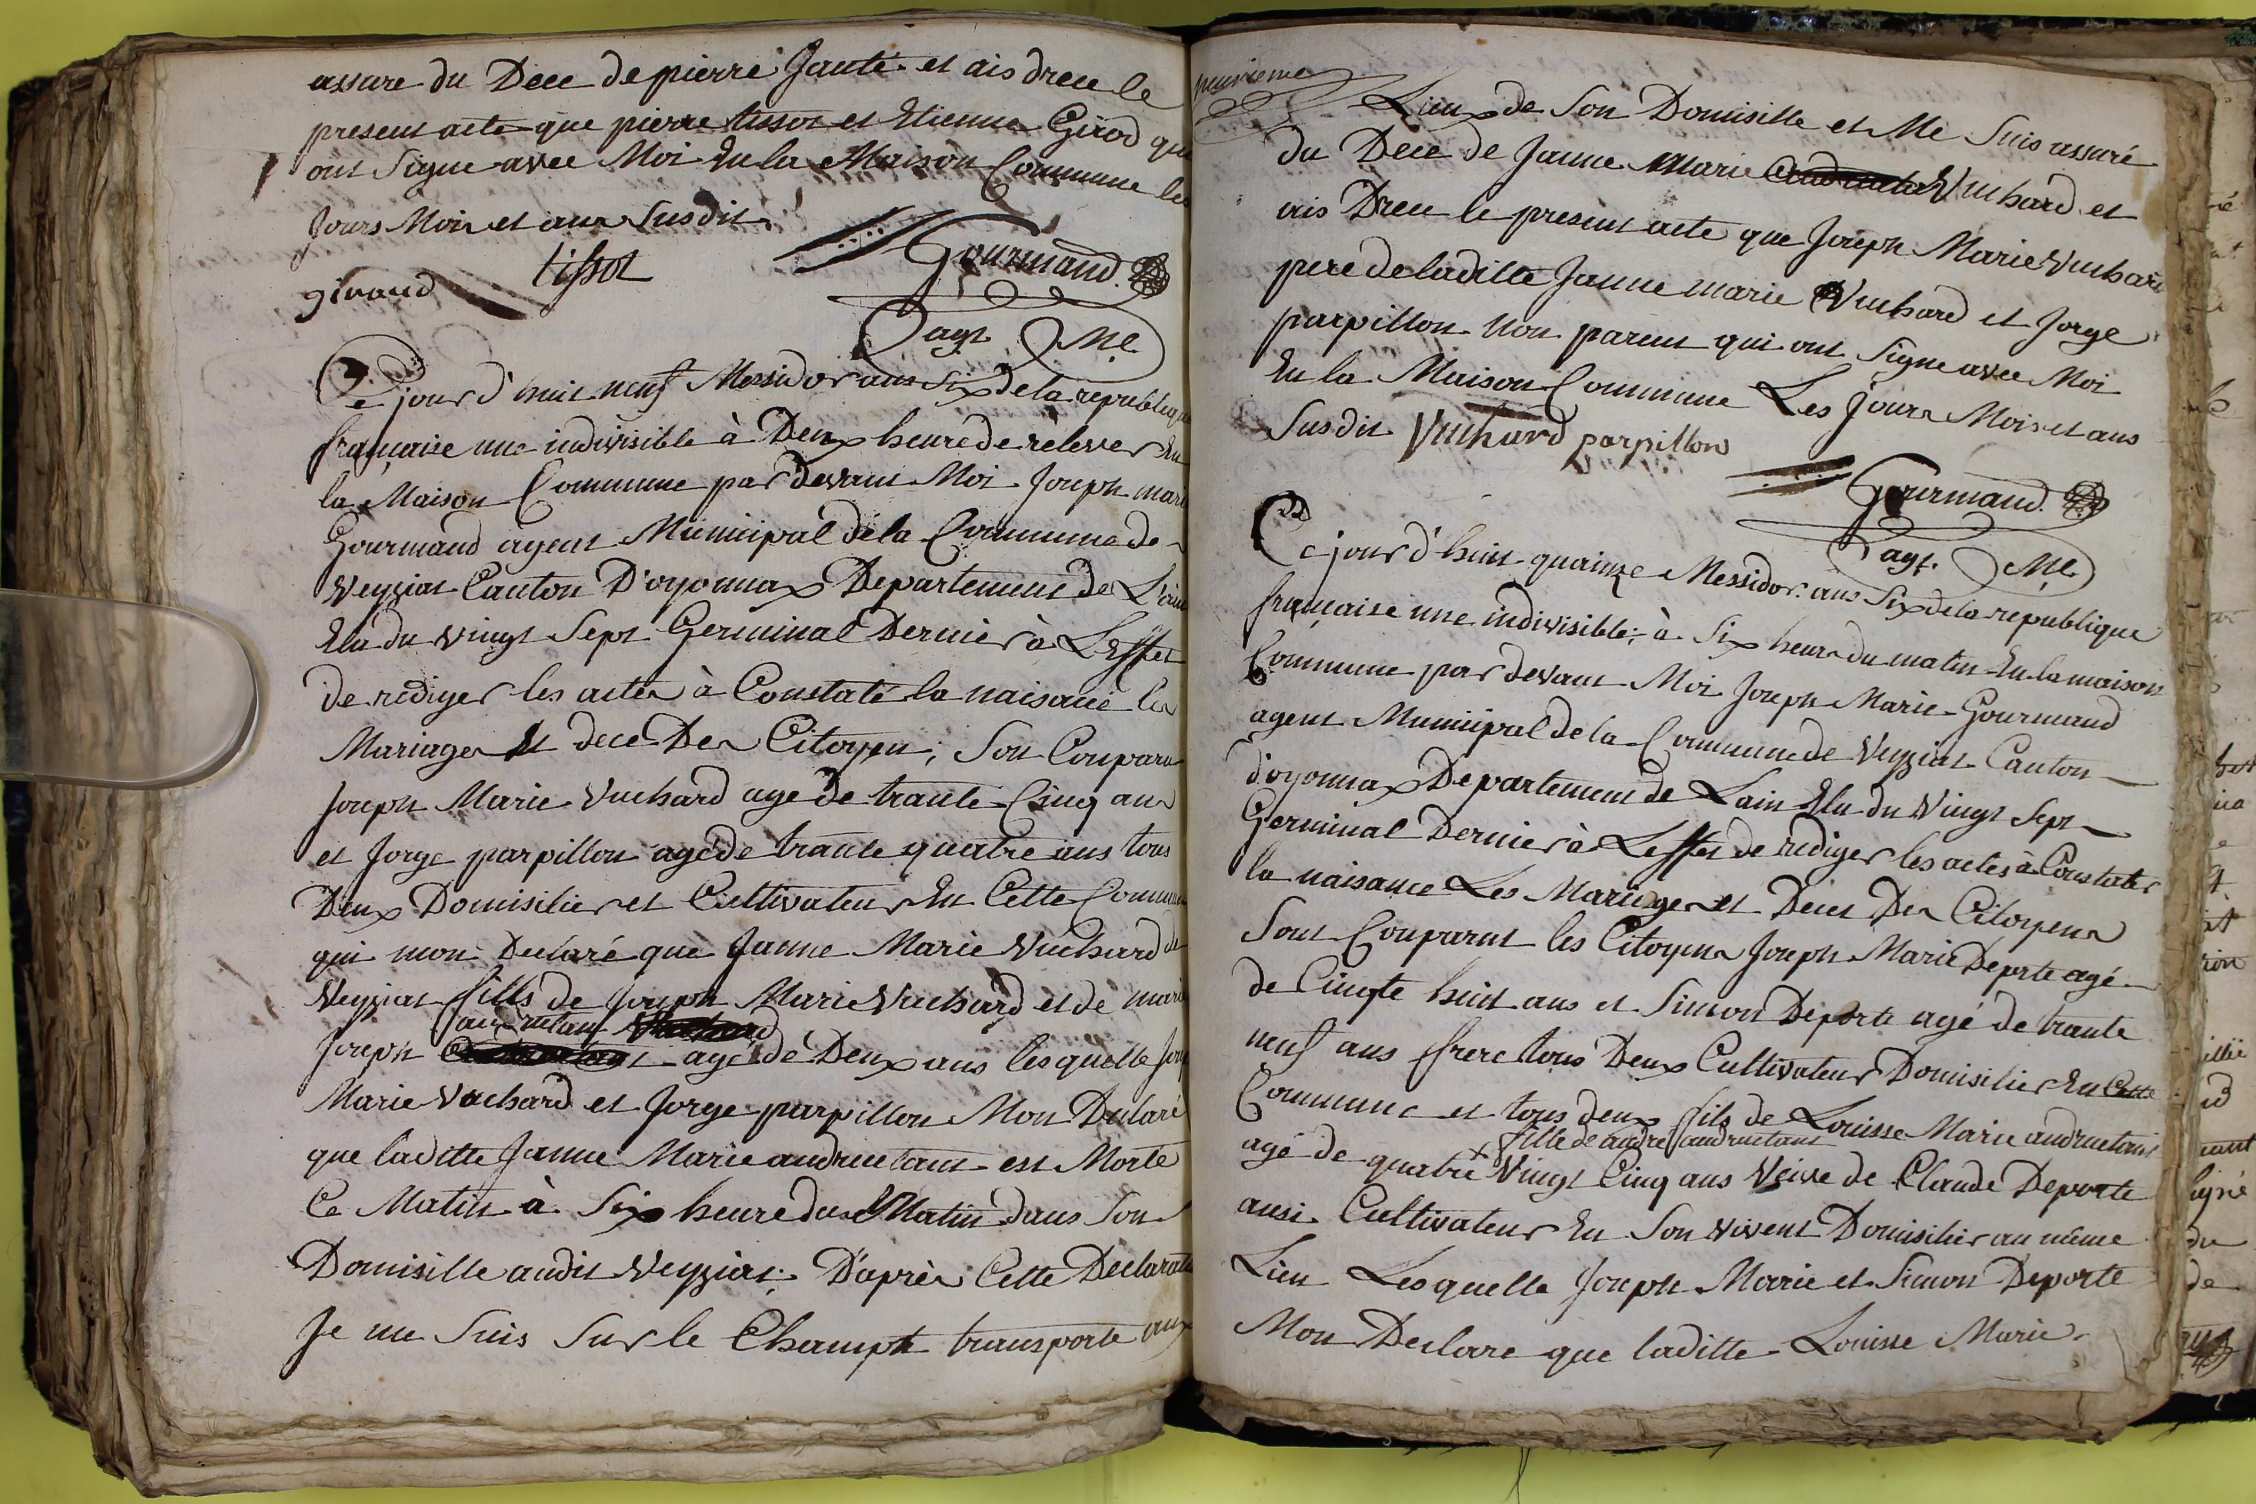 assure du Dece de pierre Jante et ais drece le
present acte que pierre tissot et Etienne Girod qui
ont Signe avec Moi En la Maison Commune les
Jours Mois et ans Susdit
giroud tissot Gourmand
agt Me
Ce jourd'huit neuf Messidor ans Six de la republique
française une indivisible à Deux heure de relever En
la Maison Commune par devant Moi Joseph marie
Gourmand agent Municipal de la Commune de
Veyziat Canton D'oyonnax Departement de L'ain
Elu du vingt Sept Germinal Dernier à L'effet
de rediger les actes à Constaté la naisance les
Mariages Et dece Des Citoyen ; Son Comparu
Joseph Marie Vuchard age de trante Cinq ans
et Jorge parpillon age de trante quatre ans tous
Deux Domisilier et Cultivateur En Cette Commune
qui mon Declaré que Janne Marie Vuchard de
Veyziat fille de Joseph Marie Vuchard et de marie
andruetant
Joseph age de Deux ans lesquelle Joseph
Marie Vuchard et Jorge parpillon Mon Declaré
que laditte Janne Marie andruetant est Morte
Ce Matin à Six heure du Matin dans Son
Domisille audit Veyziat ; D'après Cette Declaration
Je me Suis Sur le Champt transporte aux
Lieux de Son Domisille et Me Suis assuré
du Dece de Janne Marie Vuchard et
ais Drece le present acte que Joseph Marie Vuchard
pere de laditte Janne marie Vuchard et Jorge
parpillon Non parent qui ont Signe avec Moi
En la Maison Commune Les Jours Mois et ans
Susdit Vuchard parpillon
Gourmand
agt. Me
Ce jourd'huit quainze Messidor ans Six de la republique
française une indivisible ; à Six heure du matin En la maison
Commune par devant Moi Joseph Marie Gourmand
agent Municipal de la Commune de Veyziat Canton
d'oyonnax Departement de Lain Elu du Vingt Sept
Germinal Dernier à Leffet de rediger les actes à Constater
la naisance Les Mariages et Deces Des Citoyens
Sont Comparut les Citoyens Joseph Marie Deporte agé
de Cinqte huit ans et Simon Deporte agé de trante
neuf ans frere tous Deux Cultivateur Domisilier En Cette
Commune et tous deux fils de Louisse Marie andruetant
fille de andre andruetant
agé de quatre Vingt Cinq ans Veive de Claude Deporte
ausi Cultivateur En Son vivent Domisilier au même
Lieu Lesquelle Joseph Marie et Simon Deporte
Mon Declare que laditte Louisse Marie